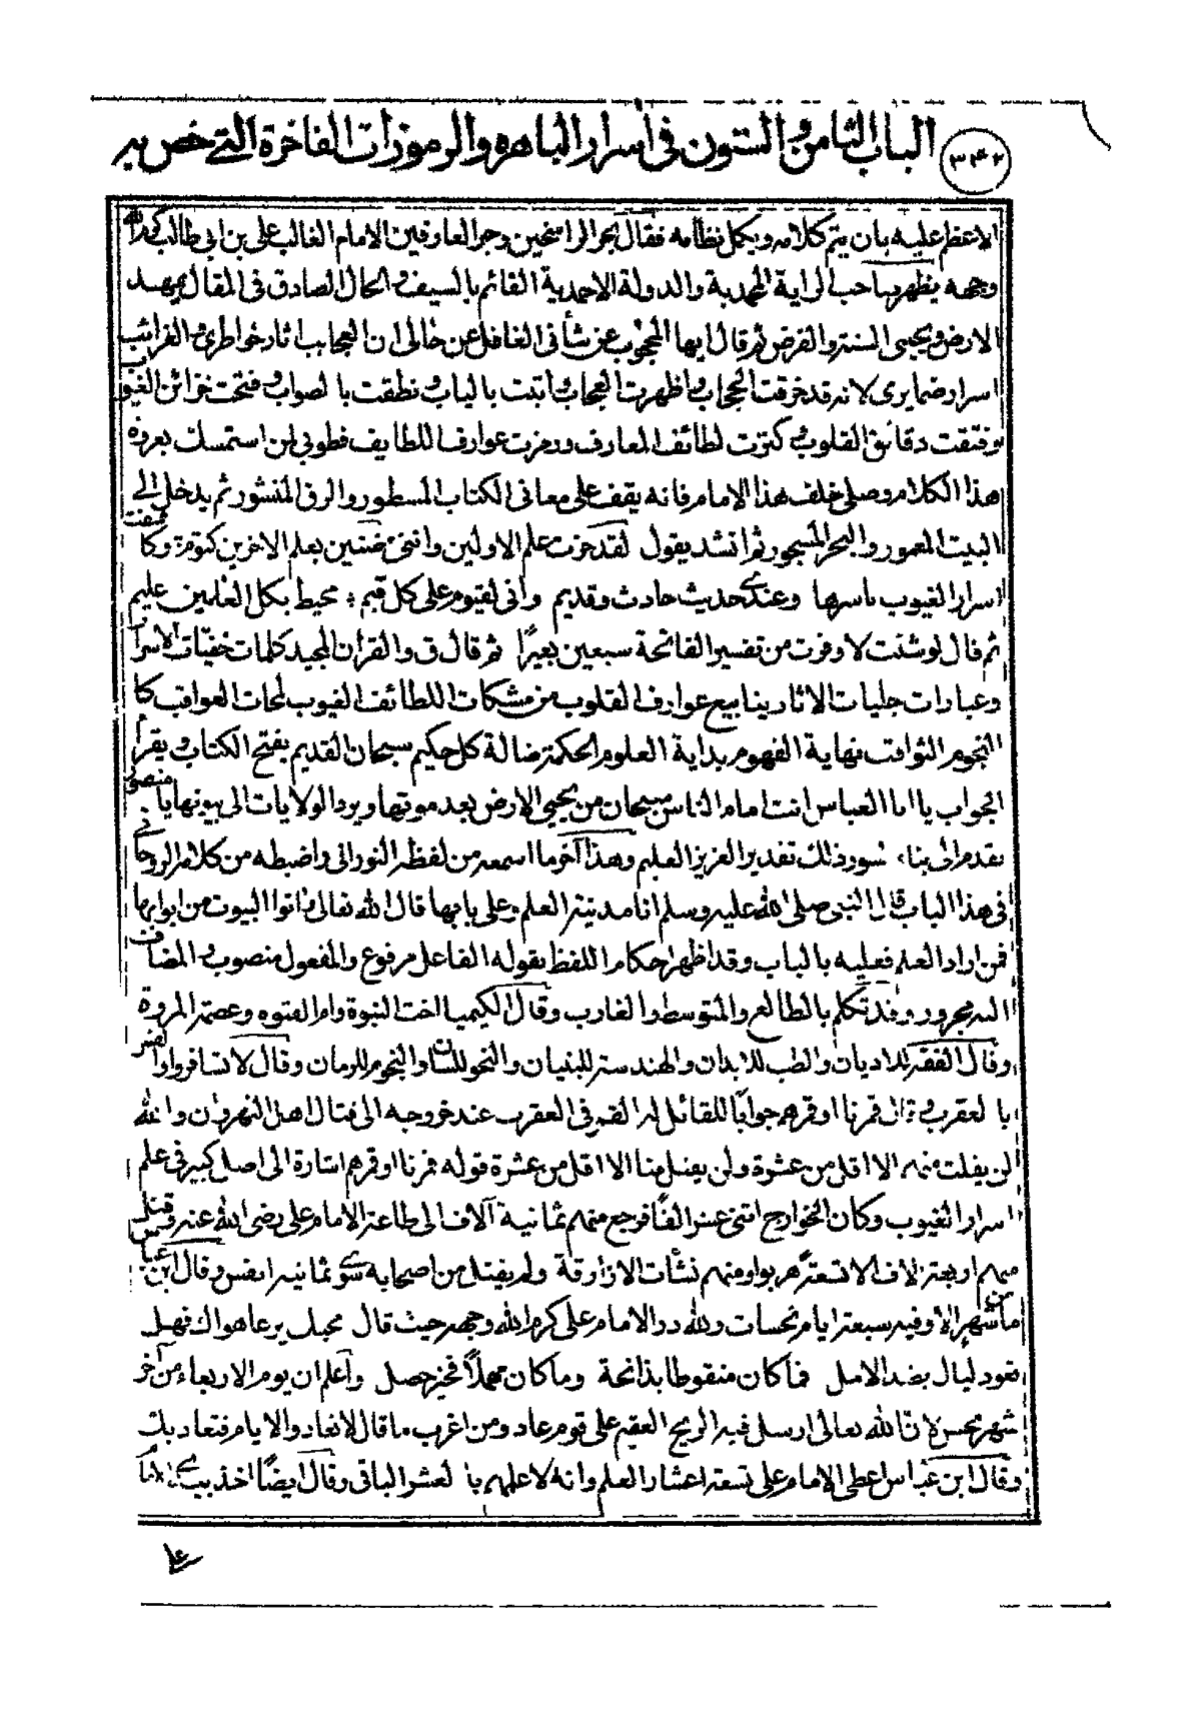 ٣٤٢ الباب الثامن والستون في أسرار الباهره والرموزات الفاخرة التي خص بها
الاعظم عليه بان يتم كلامه ويكمل نظامه فقال بحر الراسخين وحبر العارفين الامام الغالب على بن ابى طالب كرم الله
وجهه يظهر صاحب الراية المحمدية والدولة الاحمدية القائم بالسيف والحال الصادق فى المقال يمهد
الارض ويحيى السنة والفرض ثم قال ايها المحجوب عن شأنى الغافل عن حالى ان العجايب اثار خواطرى والغرائب
اسرار ضمايرى لانه قد خرقت الحجاب واظهرت العجاب واتيت بالباب ونطقت بالصواب وفتحت خزائن الغيوب
وفتقت دقائق القلوب وكنزت لطائف المعارف ورمزت عوارف اللطايف فطوبى لمن استمسك بعروة
هذا الكلام وصلى خلف هذا الامام فانه يقف على معانى الكتاب المسطور والرق المنشور ثم يدخل الى
البيت المعمور والبحر المسجور ثم انشد يقول لقد حزت علم الاولين واننى ضنين بعلم الاخرين كتوم وكاشف
اسرار الغيوب باسرها وعندى حديث حادث وقديم وانى لقيوم على كل قيم محيط بكل العلمين عليم
ثم قال لو شئت لاوقرت من تفسير الفاتحة سبعين بعيرًا ثم قال ق والقرأن المجيد كلمات خفيات الاسرار
وعبارات جليات الاثار ينابيع عوارف القلوب من مشكات اللطائف الغيوب لمحات العواقب كا
النجوم الثواقب نهاية الفهوم بداية العلوم الحكمة ضالة كل حكيم سبحان القديم يفتح الكتاب ويقرأ
الجواب يا ابا العباس انت امام الناس سبحان من يحيى الارض بعد موتها ويرد الولايات الى بيوتها يا منصور
تقدم الى بناء سور ذلك تقدير العزيز العليم وهذا آخر ما اسمعه من لفظه النورانى واضبطه من كلام الروحانى
فى هذا الباب قال النبى صلى الله عليه وسلم انا مدينة العلم وعلى بابها قال الله تعالى واتوا البيوت من ابوابها
فمن اراد العلم فعليه بالباب وقد اظهر احكام اللفظ بقوله الفاعل مرفوع والمفعول منصوب والمضاف
اليه مجرور وقد تكلم بالطالع والمتوسط والغارب وقال الكيميا اخت النبوة وام الفتوه وعصمة المروة
وقال الفقه للاديان والطب للابدان والهندسة للبنيان والنحو للسان والنجوم للزمان وقال لا تسافروا والقمر
بالعقرب قمرنا اوقرهم جوابًا للقائل له القمر فى العقرب عند خروجه الى قتال اهل النهروان والله
لن يفلت منهم الا اقل من عشرة ولن يقتل منا الا اقل من عشرة قوله قمرنا اوقرهم اشارة الى اصل كبير فى علم
اسرار الغيوب وكان الخوارج اثنى عشر الفًا فرجع منهم ثمانية آلاف الى طاعة الامام على رضى الله عنه وقتل
منهم اربعة الاف الا تسعة هربوا ومنهم نشأت الازارقة ولم يقتل من اصحابه سوى ثمانية انفس وقال ابن عباس
ما من شهر الا وفيه سبعة ايام نحسات ولله در الامام على كرم الله وجهه حيث قال محبك يرعاهواك فهل
تعود ليال بضد الامل فما كان منقوطا بذا نحة وما كان مهملاً فخير حصل وأعلم ان يوم الاربعاء من آخر
شهر نحس لان الله تعالى ارسل فيه الريح العقيم على قوم عاد ومن اغرب ما قال لا تعاد والايام فتعاديك
وقال ابن عباس اعطى الامام على تسعة اعشار العلم وانه لاعلمهم بالعشر الباقى وقال ايضًا اخذ بيدى الامام
على